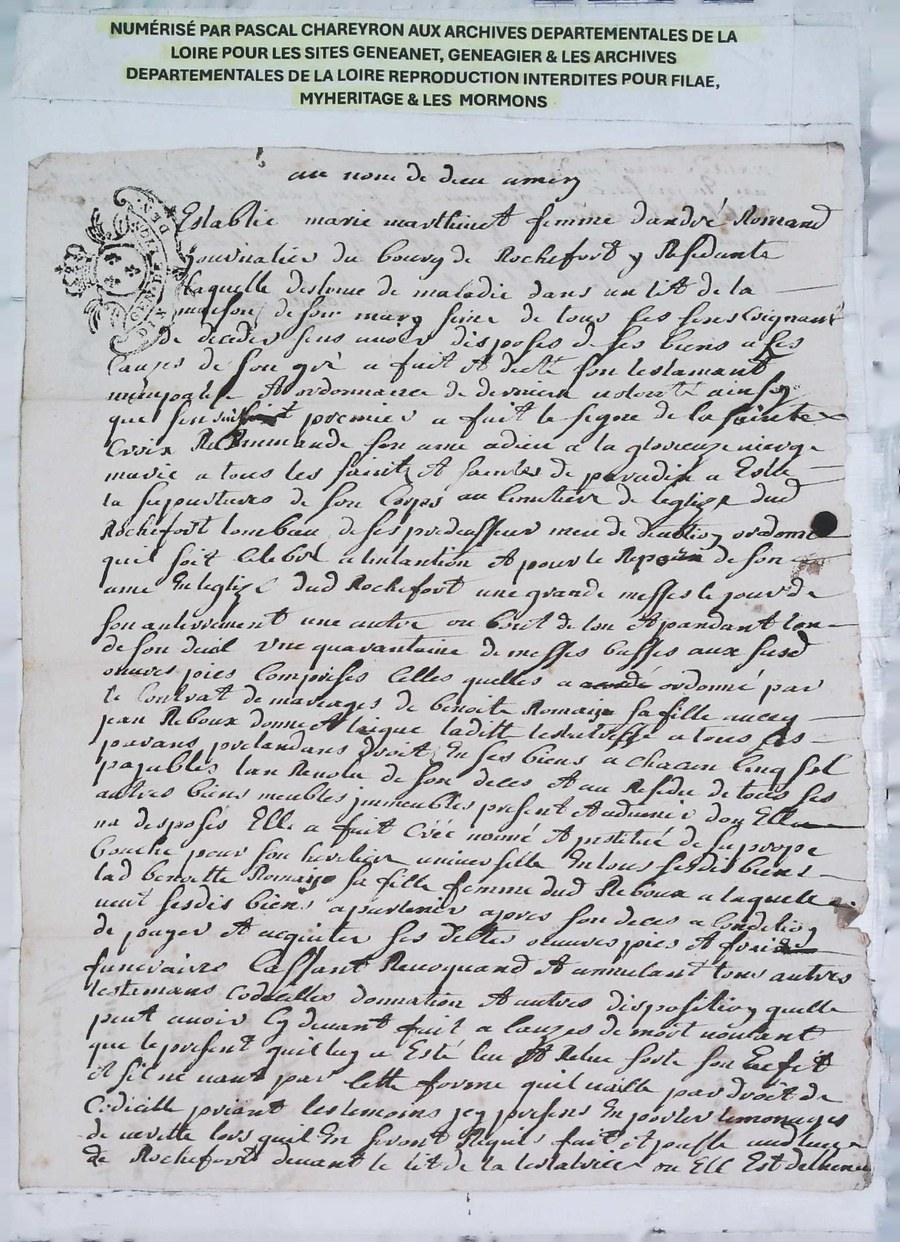 NUMÉRISÉ PAR PASCAL CHAREYRON AUX ARCHIVES DEPARTEMENTALES DE LA
LOIRE POUR LES SITES GENEANET, GENEAGIER & LES ARCHIVES
DEPARTEMENTALES DE LA LOIRE REPRODUCTION INTERDITES POUR FILAE,
MYHERITAGE & LES MORMONS
au nom de dieu amen
GEN DE LYON
Establie marie marthinet femme dandré Romand
journalier du bourg de Rochefort y Residante
laquelle detenue de maladie dans un lit de la
maison de son mary seine de tous ses sens Craignant
de deceder sens avoir disposes de ses biens a ses
causes de son gré a fait et dicté son testamant
nuncupatif et ordonnance de derniere volonté ainsy
que sensuit premier a fait le signe de la sainte
Croix Recommande son ame adieu a la glorieuze vierge
marie a tous les saints et saintes de paradix a Eslu
la sepoulture de son Corps au Cimetiere de leglize dud
Rochefort tombau de ses predecesseur meu de devotion ordonne
quil soit celebré a lintantion et pour le Repos de son
ame En leglize dud Rochefort une grande messes le jour de
son anterrement une autre au bout de lan et pandant lan
de son deuil une quarantaine de messes basses aux susd
œuvres pies Comprises Celles quelles a ordonné par
le Contrat de mariages de benoite Romand sa fille avecq
jean Reboux donne et legue laditte testatrisse a tous ses
parans pretandans droit En ses biens a chacun Cinq sol
payables lan Revolu de son deces et au Residu de tous ses
autres biens meubles immeubles present et advenir dou Elle
na disposés Elle a fait Créé nomé et institué de sa propre
bouche pour son heretiere universelle En tous sesdis biens
lad benoitte Romand sa fille femme dud Reboux a laquelle
veut sesdis biens apartenir apres son deces a Condition
de payer et acquiter ses dettes œuvres pies et frais
funeraires Cassant Revoquand et annulant tous autres
testamans codicilles donnation et autres disposition quelle
peut avoir Cy devant fait a Cauzes de mort voulant
que le present quil luy a Esté leu et Relue sorte son Enfet
et sil ne vaut par cette forme quil vaille par droit de
Codicille priant les temoins jcy presens En porter temonages
de veritté lors quil En seront Requis fait et passé
de Rochefort devant le lit de la testatrice ou Ell Est detenue